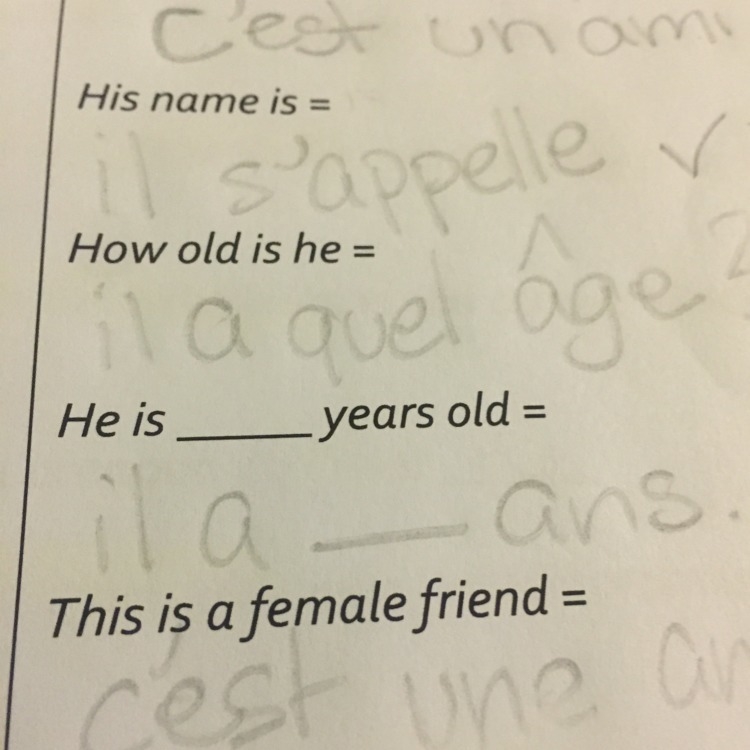 c'est un ami
His name is =
il s'appelle ✓
How old is he =
il a quel âge?
He is ______ years old =
il a ___ ans.
This is a female friend =
c'est une